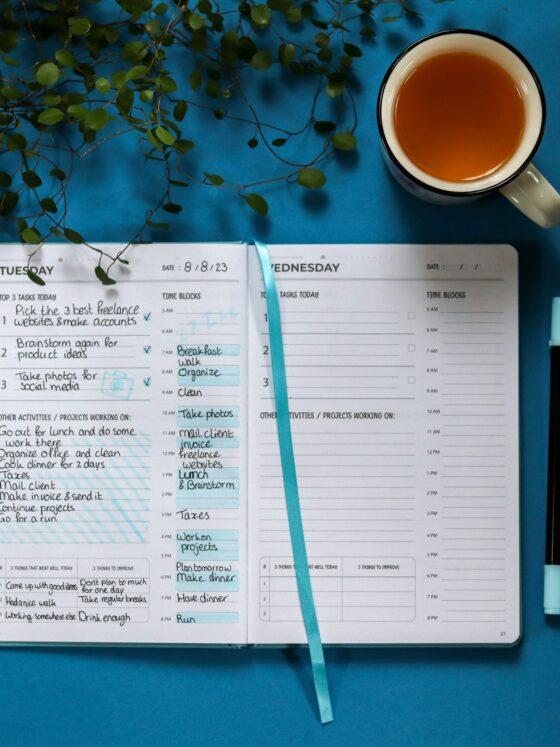 TUESDAY
DATE : 8/8/23
TOP 3 TASKS TODAY
1 Pick the 3 best freelance
websites & make accounts
2 Brainstorm again for
product ideas
3 Take photos for
social media
OTHER ACTIVITIES / PROJECTS WORKING ON:
Go out for lunch and do some
work there
Organize office and clean
Cook dinner for 2 days
Taxes
Mail client
Make invoice & send it
Continue projects
Go for a run
# 3 THINGS THAT WENT WELL TODAY 3 THINGS TO IMPROVE
Came up with good ideas Don't plan to much
for one day
Had a nice walk Take regular breaks
Working somewhere else Drink enough
TIME BLOCKS
5 AM
6 AM zzzzz
7 AM Breakfast
Walk
8 AM Organize
9 AM Clean
10 AM Take photos
11 AM Mail client
invoice
12 PM freelance
websites
1 PM Lunch
& Brainstorm
2 PM
3 PM Taxes
4 PM Work on
projects
5 PM Plan tomorrow
6 PM Make dinner
7 PM Have dinner
8 PM Run
WEDNESDAY
DATE : / /
TASKS TODAY
1
2
3
OTHER ACTIVITIES / PROJECTS WORKING ON:
# 3 THINGS WENT WELL TODAY 3 THINGS TO IMPROVE
1
2
3
TIME BLOCKS
5 AM
6 AM
7 AM
8 AM
9 AM
10 AM
11 AM
12 PM
1 PM
2 PM
3 PM
4 PM
5 PM
6 PM
7 PM
8 PM
21